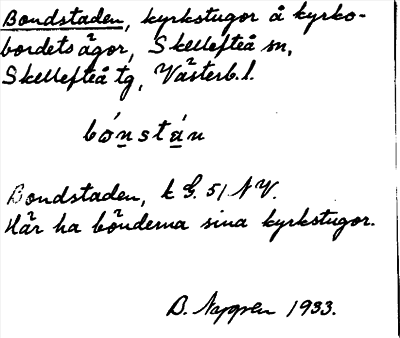 Bondstaden, kyrkstugor å kyrko-
bordets ägor, Skellefteå sn,
Skellefteå tg, Västerb. l.
bónstán
Bondstaden, k G. 51 NV.
Här ha bönderna sina kyrkstugor.
B. 1933.